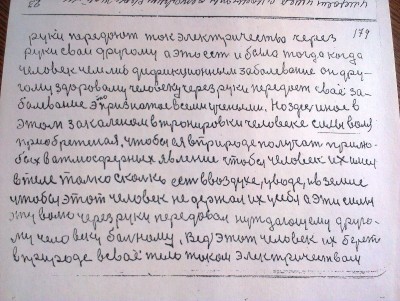 179
руки передают ток электричество через
руки свои другому а это ест и была тогда когда
человек чем либо дифекционным заболевание он дру-
гому здоровому человеку через руки передает своё за-
балевание это признатое всеми учеными. Но здес иное в
этом закаленом втронировки человеке силы воля
приобретиная, чтобы ея в природе получат при лю-
бых в атмосферных явление чтобы человек их имел
в теле только сколько ест в воздухе, у воде, и в земле
чтобы этот человек не держал их у себя а эти силы
эту волю через руки передовал нуждающему друго-
му человеку балному, Вед этот человек их берет
в природе в своё тело током электричествам